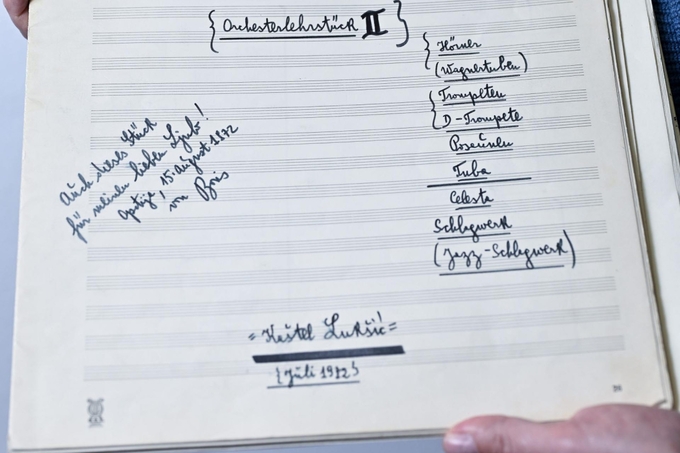 {Orchesterlehrstück II}
{Hörner
(Wagnertuben)
{Trompeten
D-Trompete
Posaunen
Tuba
Celesta
Schlagwerk
(Jazz-Schlagwerk)
Auch dieses Stück
für meinen lieben Ljubo!
15. August 1972
von Boris
= Kaštel Lukšić! =
{Juli 1972}